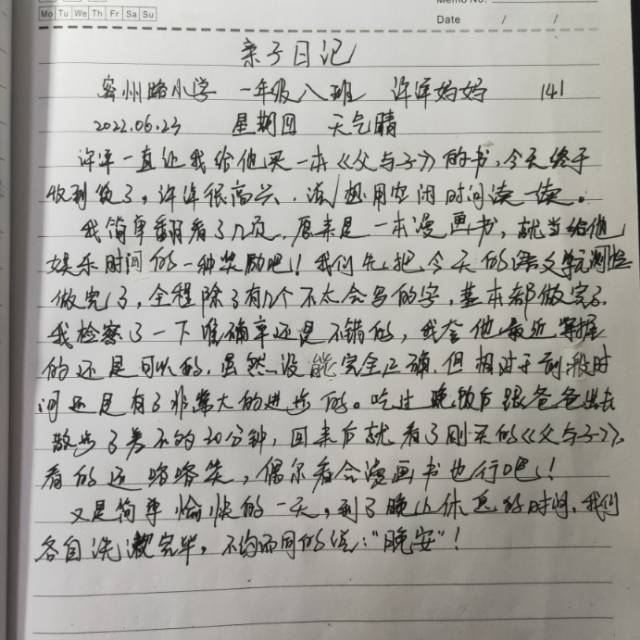 Memo No.
Mo Tu We Th Fr Sa Su
Date / /
亲子日记
密州路小学 一年级八班 许津妈妈 141
2022.06.23 星期四 天气晴
许津一直让我给他买一本《父与子》的书,今天终于
收到货了,许津很高兴,想用空闲时间读一读。
我简单翻看了几页,原来是一本漫画书,就当给他
娱乐时间的一种奖励吧!我们先把今天的语文单元测
做完了,全程除了有几个不太会写的字,基本都做完了。
我检察了一下准确率还是不错的,我夸他最近掌握
的还是可以的,虽然没能完全正确,但相对于前段时
间还是有了非常大的进步的。吃过晚饭后跟爸爸出去
散步了差不多30分钟,回来后就看了刚买的《父与子》,
看的还咯咯笑,偶尔看会漫画书也行吧!
又是简单愉快的一天,到了晚上休息的时间,我们
各自洗漱完毕,不约而同的说:“晚安”!